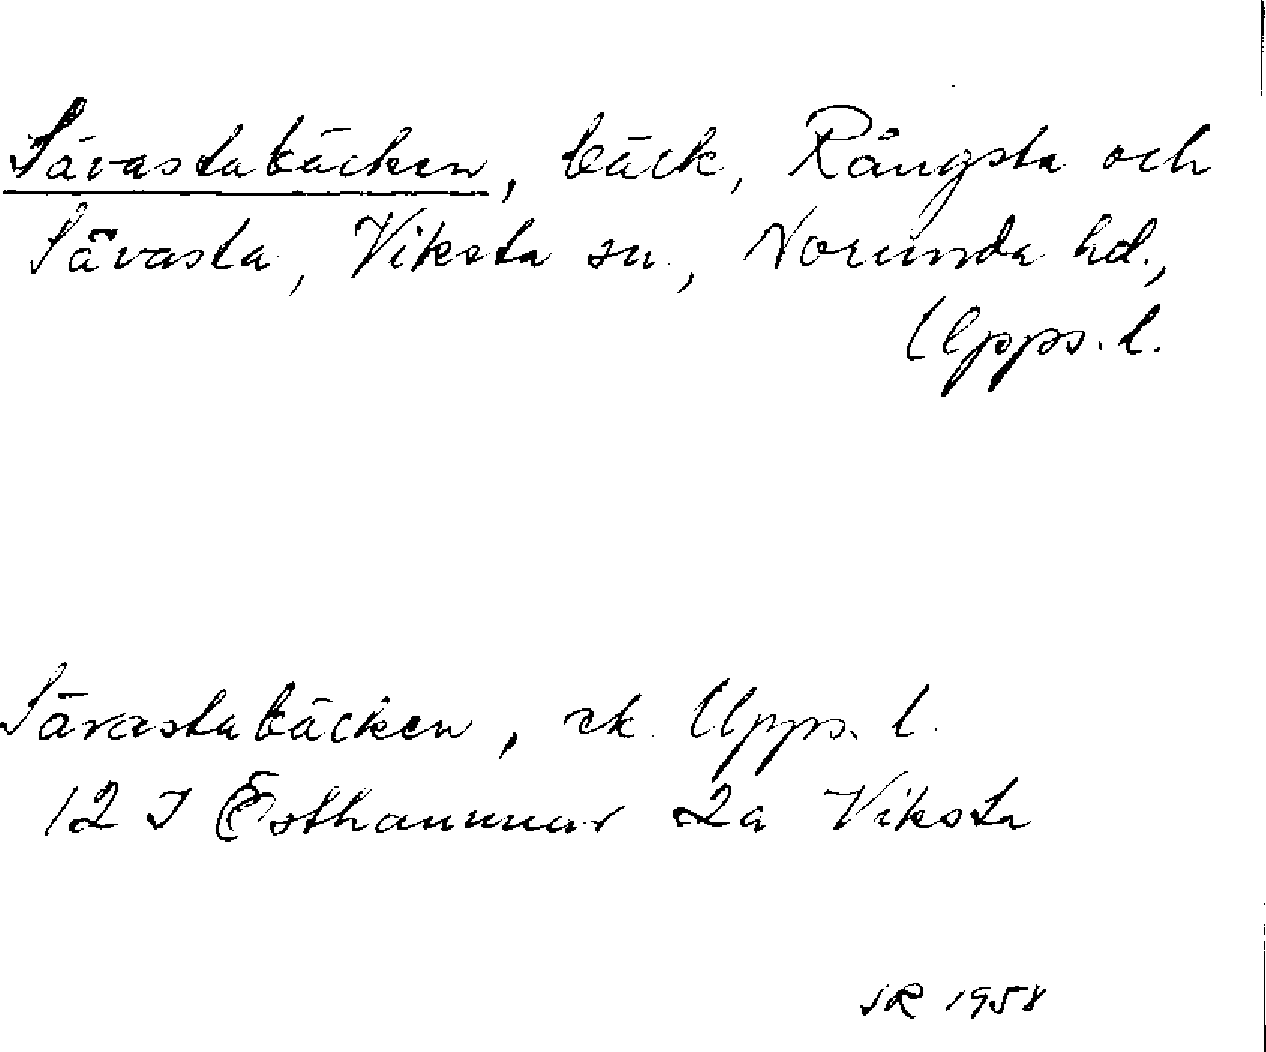 Sävastabäcken, bäck, Rångsta och
Sävasta, Viksta sn., Norunda hd.,
Upps. l.
Sävastabäcken, ek. Upps. l.
12 I Östhammar 2a Viksta
JR 1958